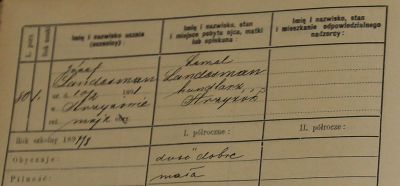 L. porz.
Rok nauki
Imię i nazwisko ucznia
(uczenicy)
Imię i nazwisko, stan
i miejsce pobytu ojca, matki
lub opiekuna:
Imię i nazwisko, stan
i mieszkanie odpowiedzialnego
nadzorcy:
80
1.
Józef
Landesman
ur. d.
Strzyżowie
rel. mojż. obrz.
Kamal
Landesman
handlarz
Strzyżów
Rok szkolny 1897/8
I. półrocze:
II. półrocze:
Obyczaje:
dość dobre
Pilność:
mała